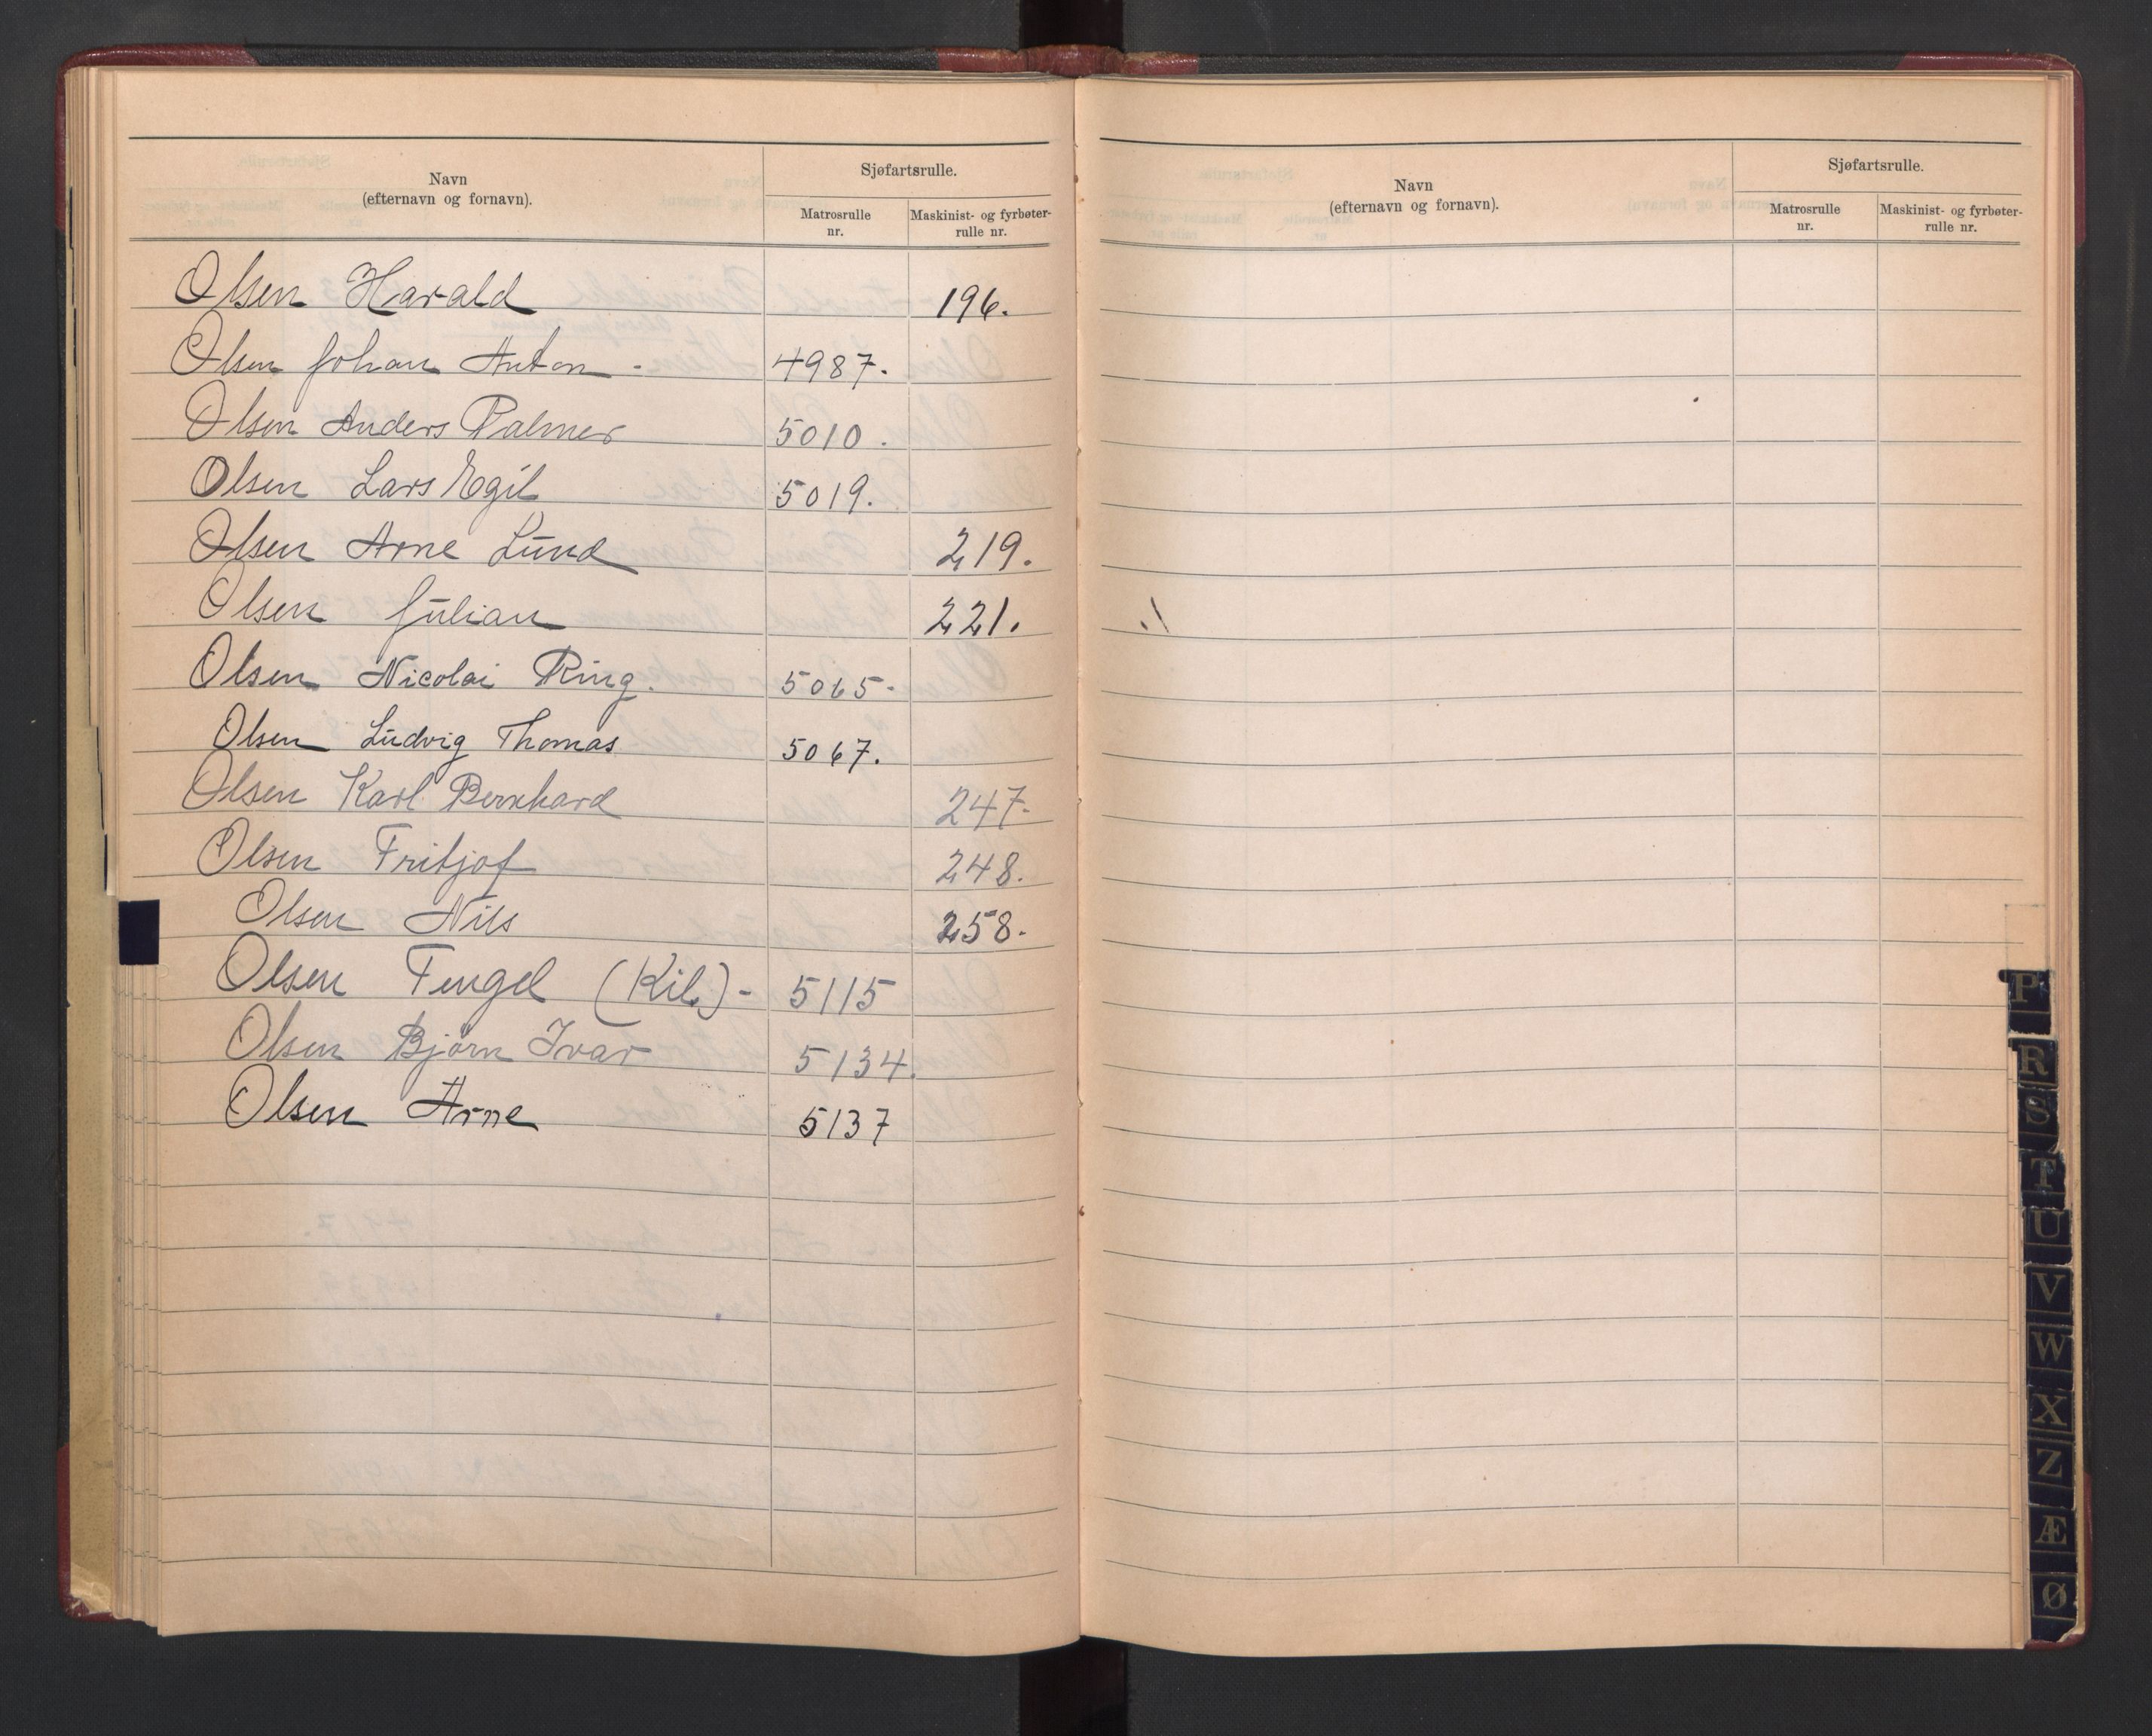 Navn
(efternavn og fornavn).
Sjøfartsrulle.
Matrosrulle
nr.
Maskinist- og fyrbøter-
rulle nr.
Olsen Harald 196.
Olsen Johan Anton - 4987.
Olsen Anders Palmer 5010.
Olsen Lars Egil 5019.
Olsen Arne Lund 219.
Olsen Julian 221.
Olsen Nicolai Ring. 5065-
Olsen Ludvig Thomas 5067.
Olsen Karl Bernhard 247-
Olsen Fritjof 248.
Olsen Nils 258-
Olsen Tengel (Kil.) - 5115
Olsen Bjørn Ivar 5134.
Olsen Arne 5137
Navn
(efternavn og fornavn).
Sjøfartsrulle.
Matrosrulle
nr.
Maskinist- og fyrbøter-
rulle nr.
P
R
S
T
U
V
W
X
Z
Æ
Ø